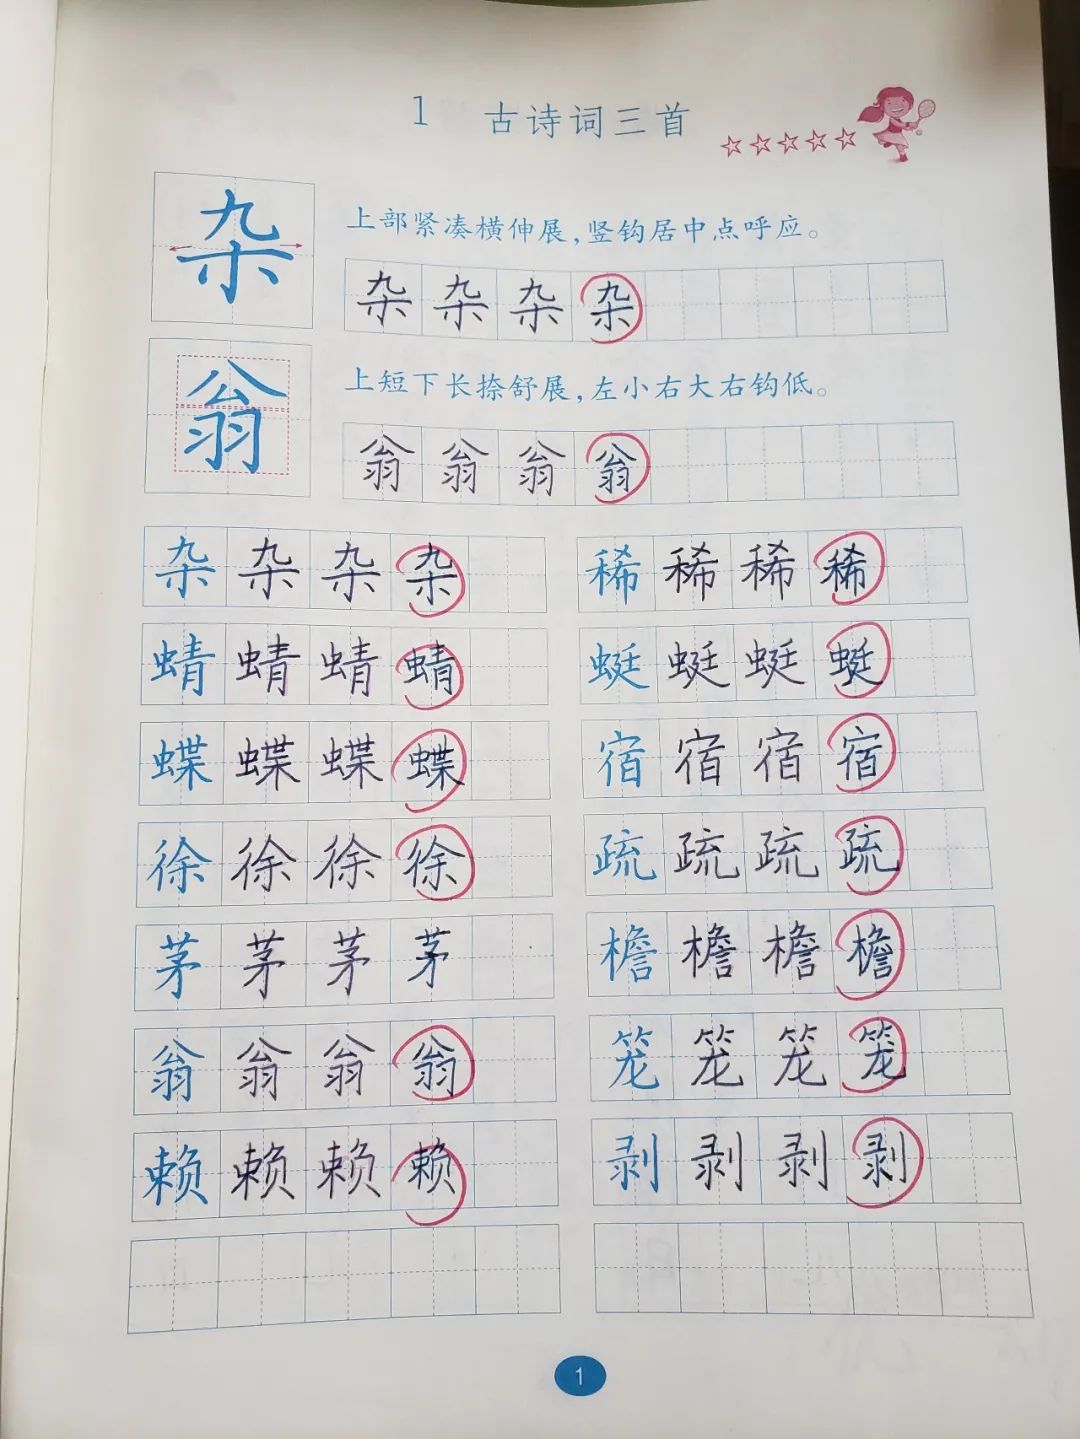 1 古诗词三首
杂
上部紧凑横伸展,竖钩居中点呼应。
杂 杂 杂 杂
翁
上短下长捺舒展,左小右大右钩低。
翁 翁 翁 翁
杂 杂 杂 杂 稀 稀 稀 稀
蜻 蜻 蜻 蜻 蜓 蜓 蜓 蜓
蝶 蝶 蝶 蝶 宿 宿 宿 宿
徐 徐 徐 徐 疏 疏 疏 疏
茅 茅 茅 茅 檐 檐 檐 檐
翁 翁 翁 翁 笼 笼 笼 笼
赖 赖 赖 赖 剥 剥 剥 剥
1